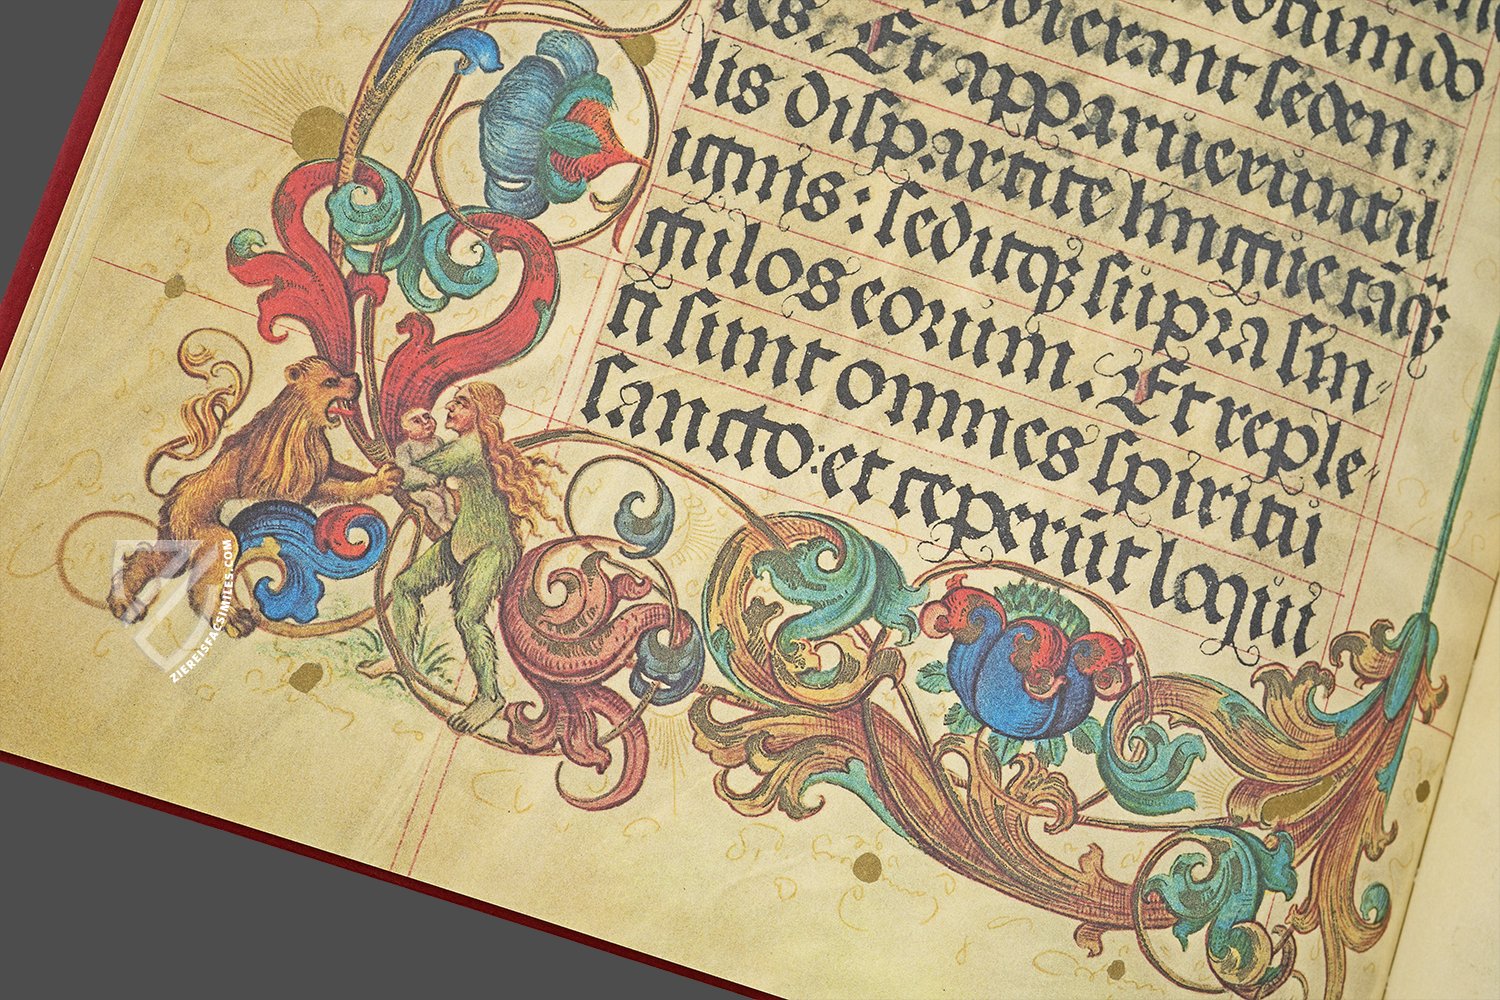 tes. Et apparuerunt il
lis dispartite lingue tãq̃;
ignis: seditq; supra sin-
gulos eorum. Et reple-
ti sunt omnes spiritu
sancto: et ceperũt loqui
ZIEREISFACSIMILES.COM